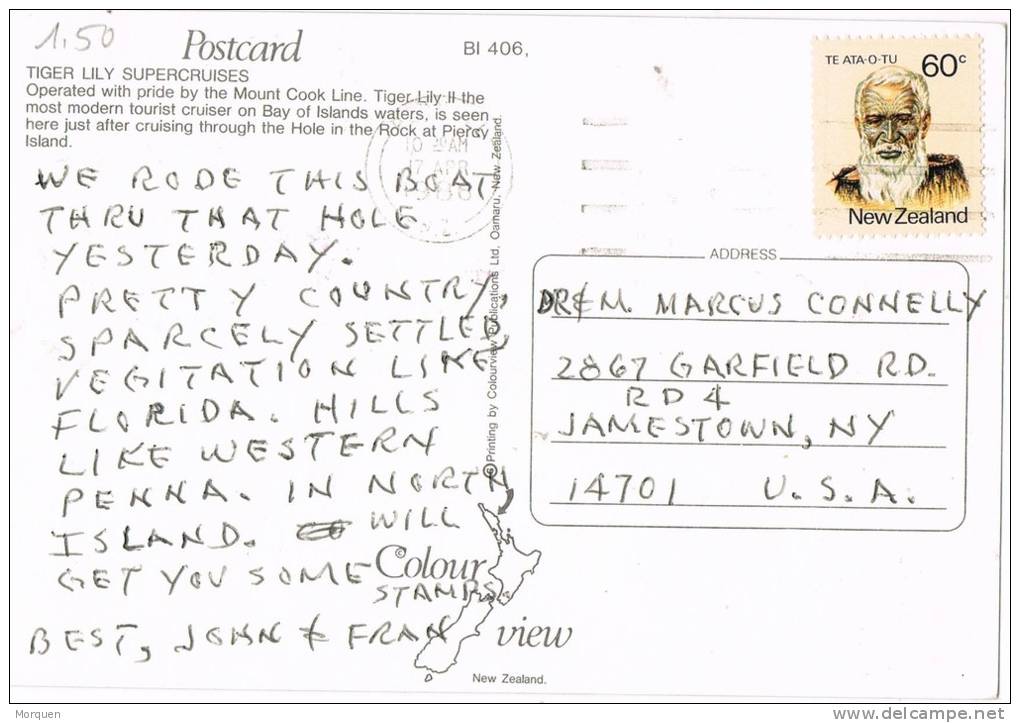 1.50
Postcard
BI 406,
TIGER LILY SUPERCRUISES
Operated with pride by the Mount Cook Line. Tiger Lily II the
most modern tourist cruiser on Bay of Islands waters, is seen
here just after cruising through the Hole in the Rock at Piercy
Island.
WE RODE THIS BOAT
THRU THAT HOLE
YESTERDAY.
PRETTY COUNTRY,
SPARCELY SETTLED,
VEGITATION LIKE
FLORIDA. HILLS
LIKE WESTERN
PENNA. IN NORTH
ISLAND. WILL
GET YOU SOME
STAMPS.
BEST, JOHN & FRAN
10 AM
17 APR
Printing by Colourview Publications Ltd, Oamaru, New Zealand.
© Colour
view
New Zealand.
TE ATA-O-TU
60c
New Zealand
ADDRESS
DR & M. MARCUS CONNELLY
2867 GARFIELD RD.
RD 4
JAMESTOWN, NY
14701 U.S.A.
Morquen
www.delcampe.net